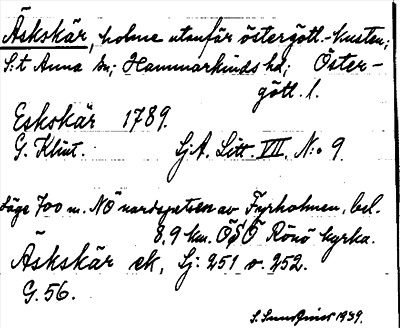 Äskskär, holme utanför östergötl.-kusten;
S:t Anna sn; Hammarkinds hd; Öster-
götl. l.
Eskskär 1789.
G. Klint. Sj.A. Litt. VII. N:o 9.
Läge 700 m. NÖ nordspetsen av Fyrholmen, bel.
8,9 km. ÖSÖ Rönö kyrka.
Äskskär ek, Sj. 251 o. 252.
G. 56.
S. Sundqvist 1939.